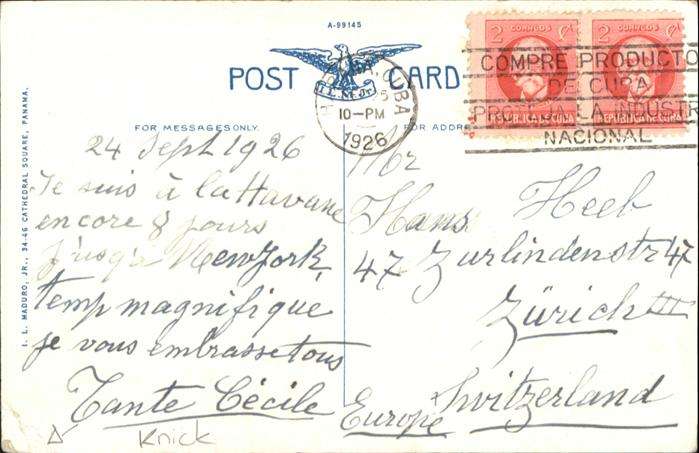 A-99145
POST CARD
I. L. M. Jr.
FOR MESSAGES ONLY.
FOR ADDRE
I. L. MADURO, JR., 34-46 CATHEDRAL SQUARE, PANAMA.
CUBA
10-PM
1926
2 CORREOS 2 CORREOS
REPUBLICA DE CUBA REPUBLICA DE CUBA
COMPRE PRODUCTO
DE CUBA
LA INDUSTR
NACIONAL
24 Sept 1926
Je suis à la Havane
encore 8 jours
jusqu'a New York,
temp magnifique
je vous embrasse tous
Tante Cécile
Knick
Mr
Hans Heeb
47 Zurlindenstr 47
Zürich III
Switzerland
Europe